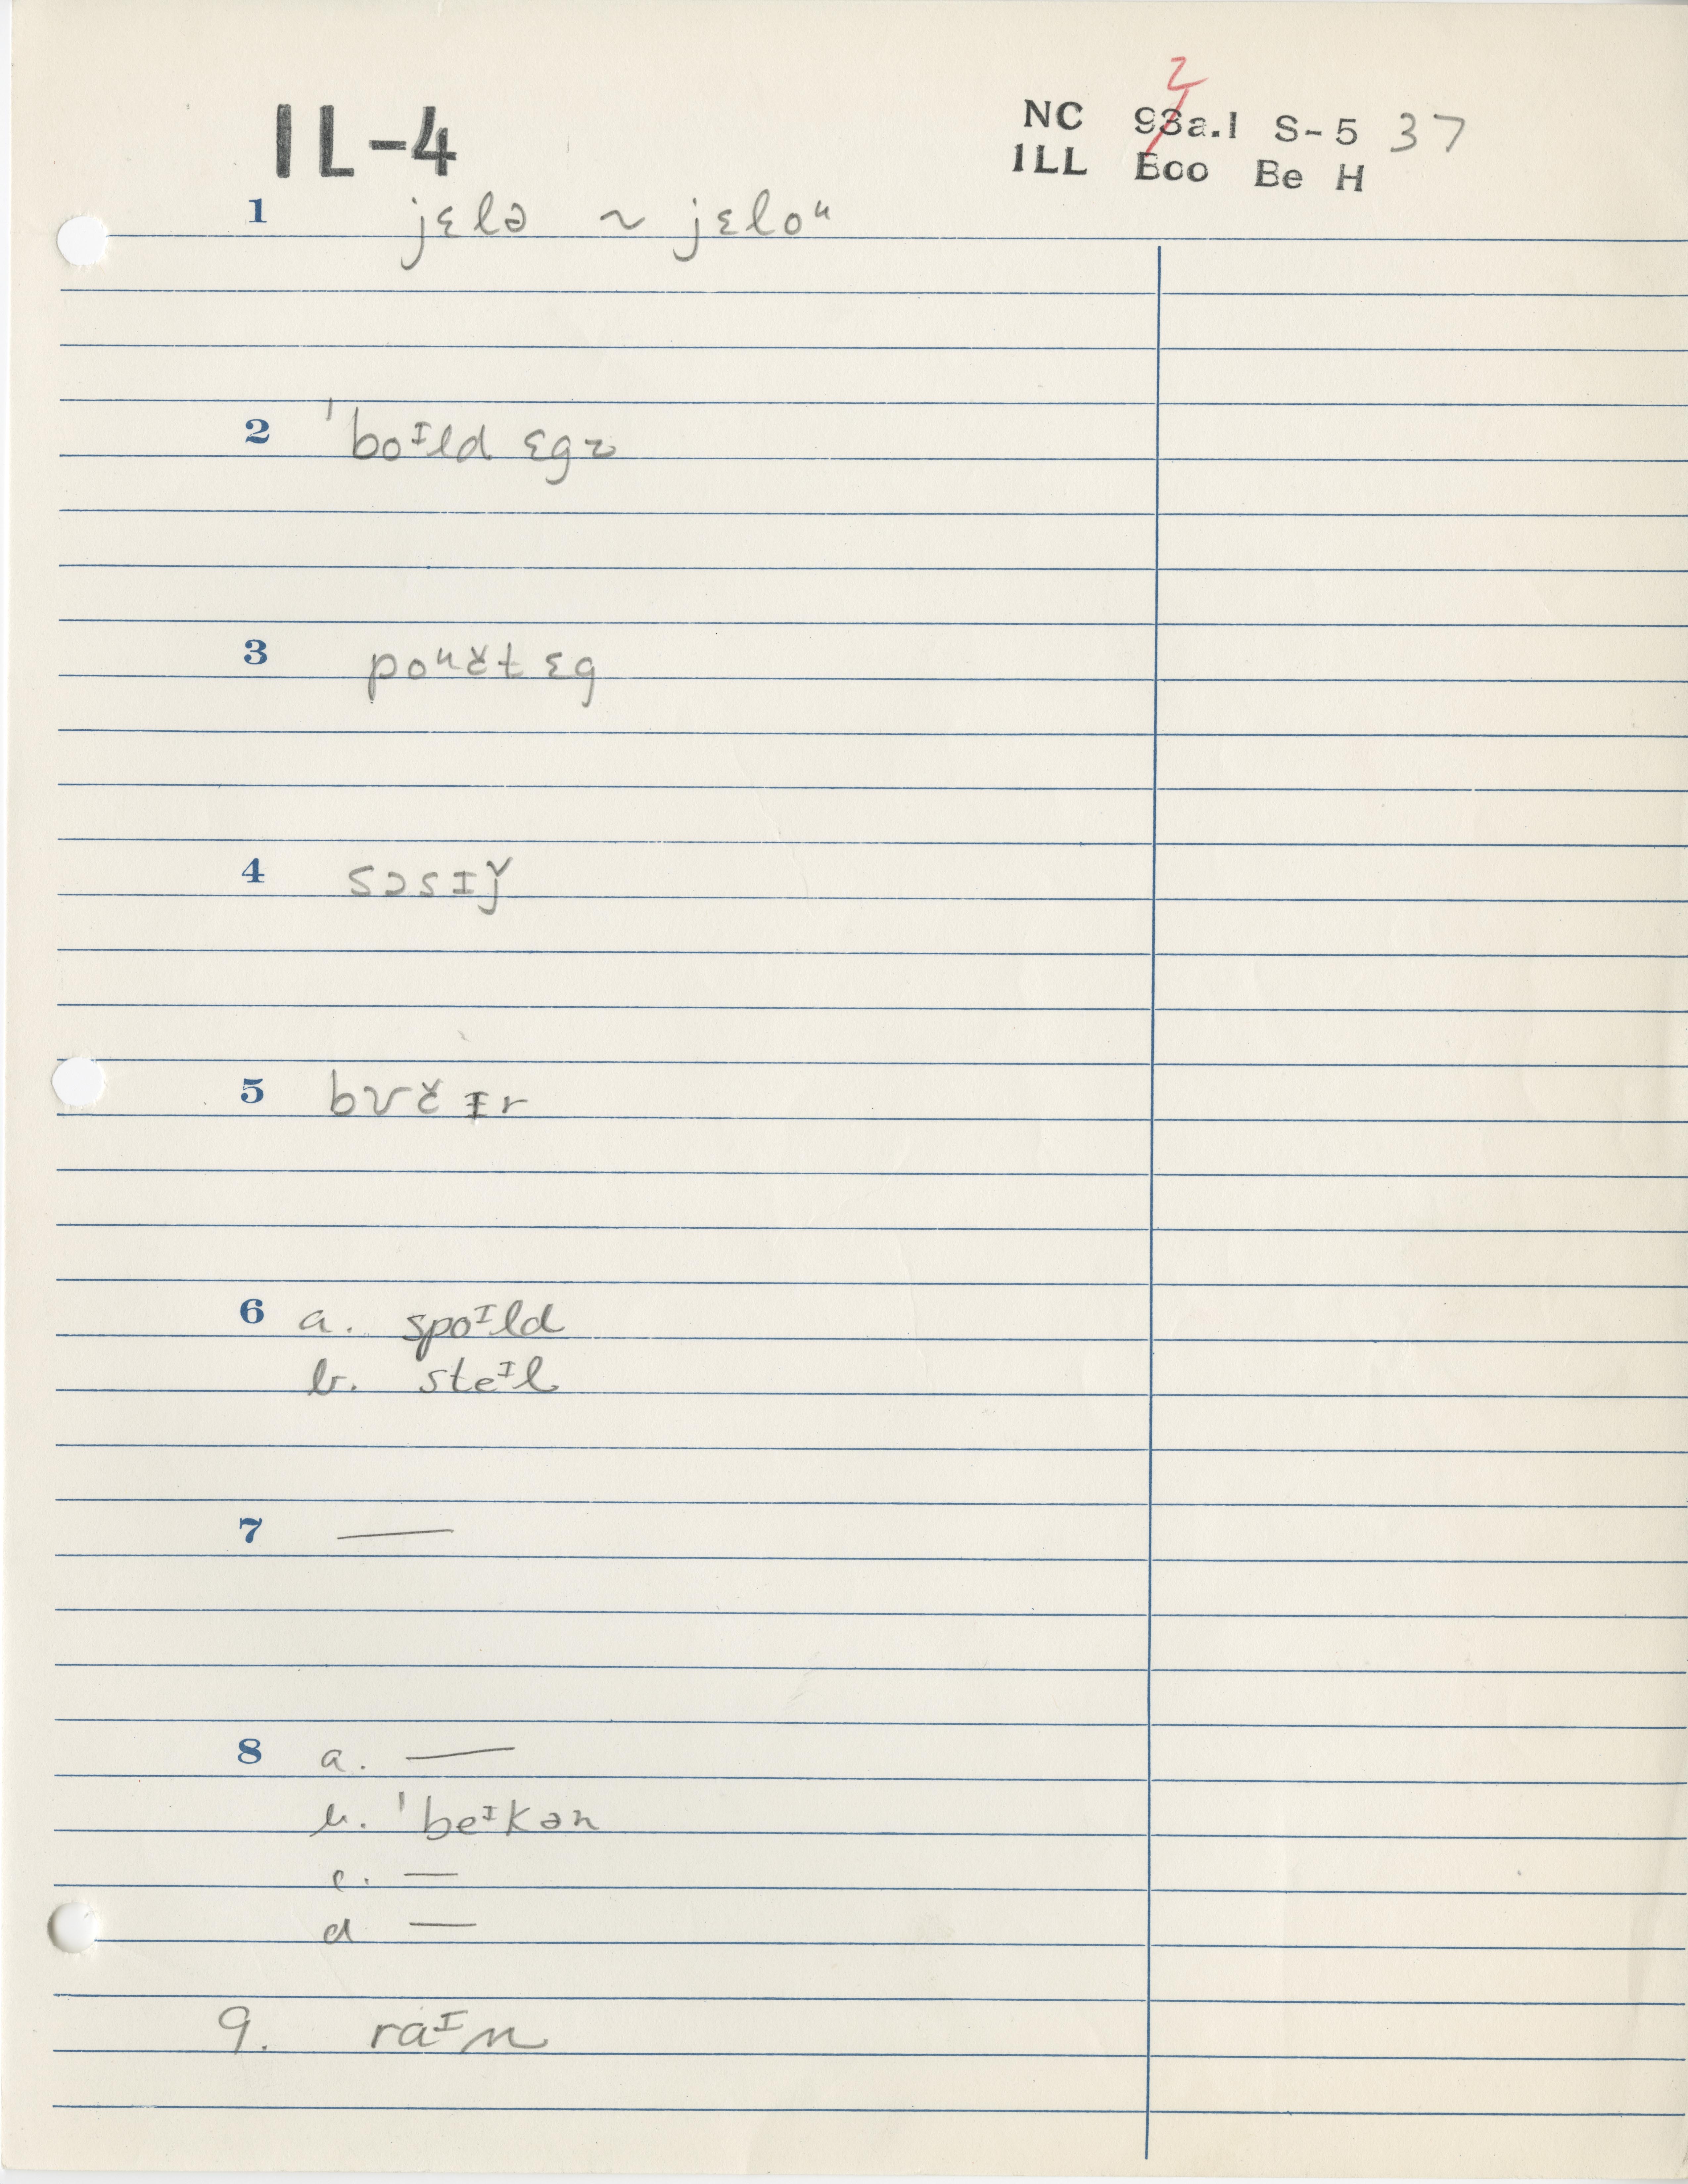 IL-4
2
NC 93a.1 S-5 37
ILL Boo Be H
1 jɛlə ~ jɛloᵘ
2 ˈboᶦld ɛgz
3 poᵘɤ̌t ɛg
4 sɔsɪǰ
5 bʊɤ̌ɪr
6 a. spoᶦld
b. steᶦl
7 —
8 a. —
b. ˈbeᶦkən
c. —
d —
9. raᶦn